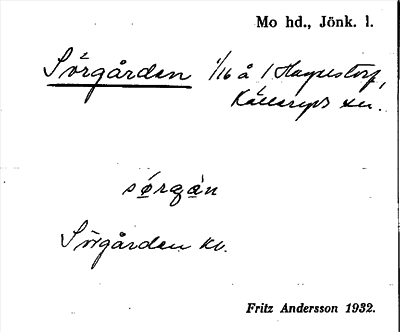 Mo hd., Jönk. l.
Sörgården 1/16 å 1 Hagestorp,
Källeryds sn.
sǿrgàn
Sörgården kv.
Fritz Andersson 1932.